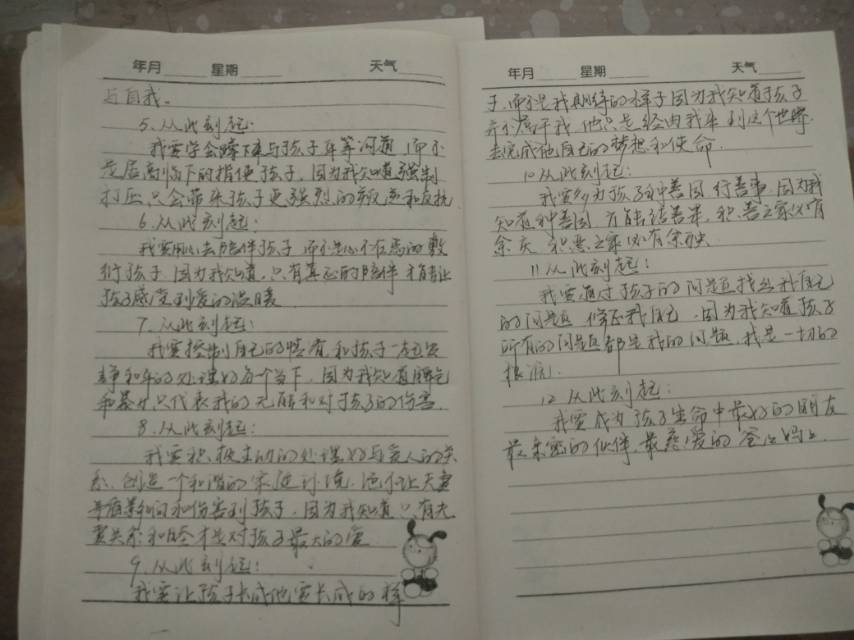 年月 星期 天气
与自我。
5、从此刻起:
我要学会蹲下来与孩子平等沟通,而不
是居高临下的指使孩子,因为我知道强制
打压只会带来孩子更强烈的叛逆和反抗
6、从此刻起:
我要用心去陪伴孩子 而不是心不在焉的敷
衍孩子 因为我知道,只有真正的陪伴 才能让
孩子感受到爱的温暖
7、从此刻起:
我要控制自己的情绪 和孩子一起
静和平的处理好每个当下,因为我知道脾气
和暴力只代表我的无能和对于孩子的伤害.
8、从此刻起:
我要积极主动的处理好与爱人的关
系,创造一个和谐的家庭环境,而不让夫妻
矛盾影响和伤害到孩子,因为我知道 只有夫
妻关系和睦才是对孩子最大的爱
9、从此刻起:
我要让孩子长成他要长成的样
年月 星期 天气
子,而不是我期待的样子因为我知道孩子
并不属于我,他只是经由我来到这个世界
去完成他自己的梦想和使命
10从此刻起:
我要多为孩子种善因 行善事,因为我
知道种善因 方能结善果,积善之家必有
余庆 积恶之家必有余殃
11从此刻起:
我要通过孩子的问题找出我自己
的问题 修正我自己,因为我知道孩子
所有的问题都是我的问题,我是一切的
根源!
12从此刻起:
我要成为孩子生命中最好的朋友
最亲密的伙伴,最慈爱的爸爸妈妈.